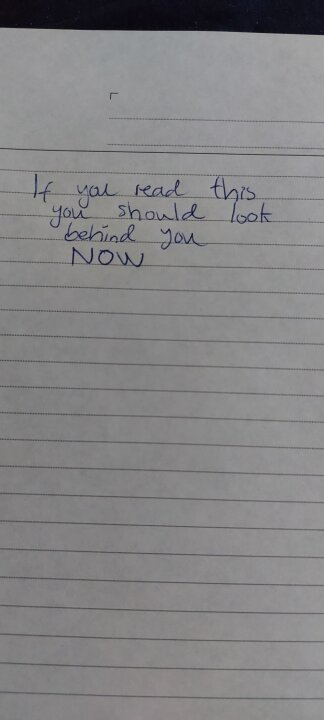 If you read this
you should look
behind you
NOW